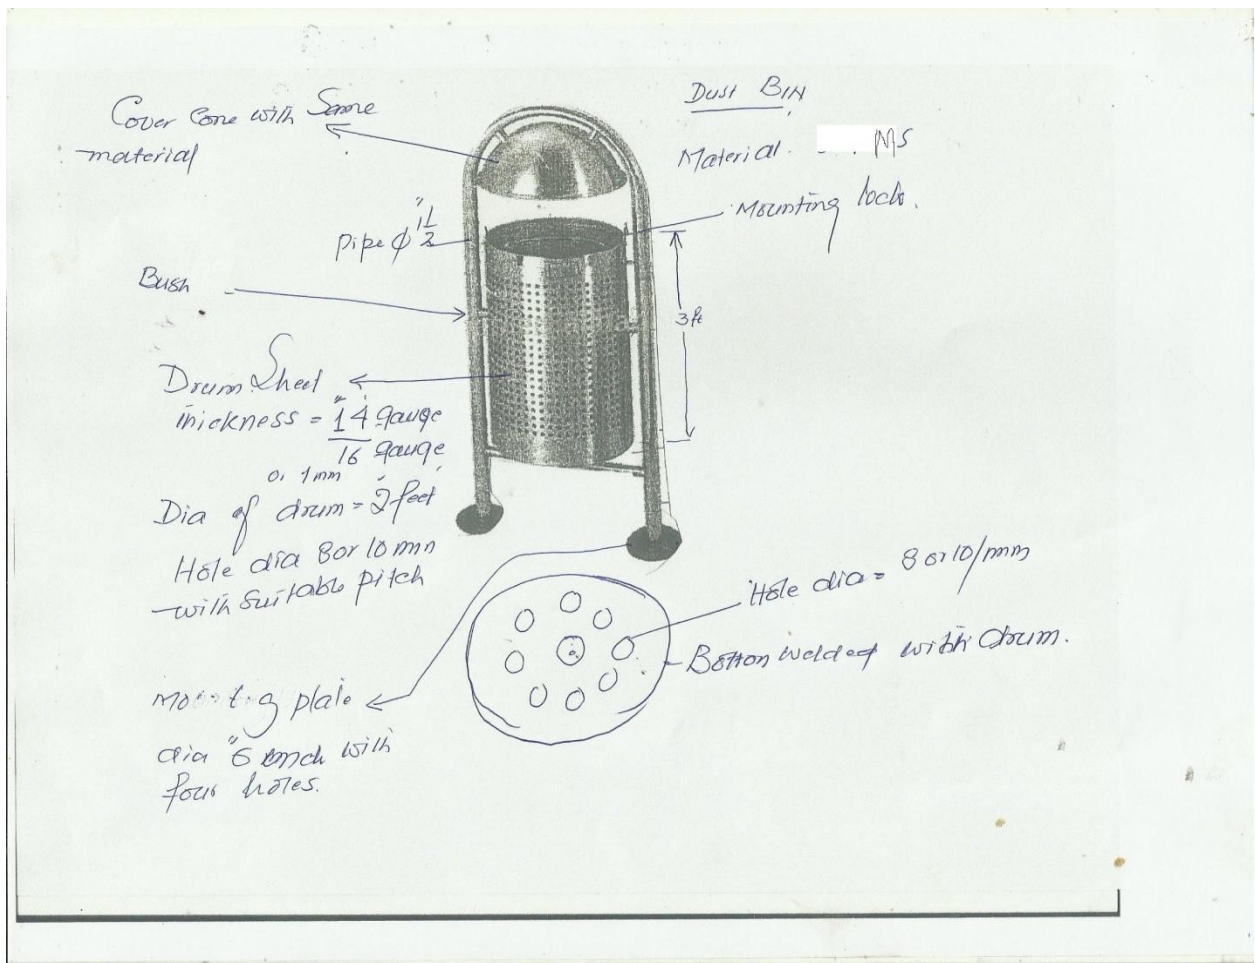 Dust BIN
Material. MS
Cover Cone with Same
material
Mounting lock.
Pipe ϕ 1 1/2"
Bush
3 ft
Drum Sheet
thickness = 14 gauge
16 gauge
0. 1mm
Dia of drum = 2 feet
Hole dia 8 or 10 mm
with suitable pitch
Hole dia = 8 or 10/mm
Bottom welded with drum.
plate
dia "6 inch with
four holes.